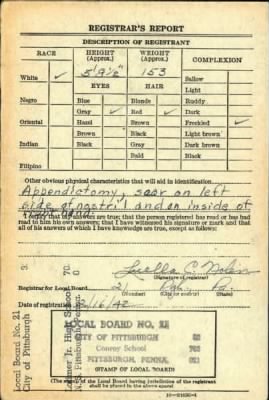 REGISTRAR'S REPORT
DESCRIPTION OF REGISTRANT
RACE HEIGHT (Approx.) WEIGHT (Approx.) COMPLEXION
White ✓ 5' 9½" 153 Sallow
EYES HAIR Light
Negro Blue Blonde Ruddy
Gray ✓ Red ✓ Dark
Oriental Hazel Brown Freckled ✓
Brown Black Light brown
Indian Black Gray Dark brown
Bald Black
Filipino
Other obvious physical characteristics that will aid in identification
Appendictomy, scar on left
side of nostril and on inside of
hand.
I certify that my answers are true; that the person registered has read or has had
read to him his own answers; that I have witnessed his signature or mark and that
all of his answers of which I have knowledge are true, except as follows:
Luella C. Nolan
(Signature of registrar)
Registrar for Local Board 21 Pgh. Pa.
(Number) (City or county) (State)
Date of registration 2/16/42
LOCAL BOARD NO. 21
CITY OF PITTSBURGH
Conroy School
PITTSBURGH, PENNA.
(STAMP OF LOCAL BOARD)
(The stamp of the Local Board having jurisdiction of the registrant
shall be placed in the above space)
Local Board No. 21
City of Pittsburgh
Jr. High School
Pittsburgh, Penna.